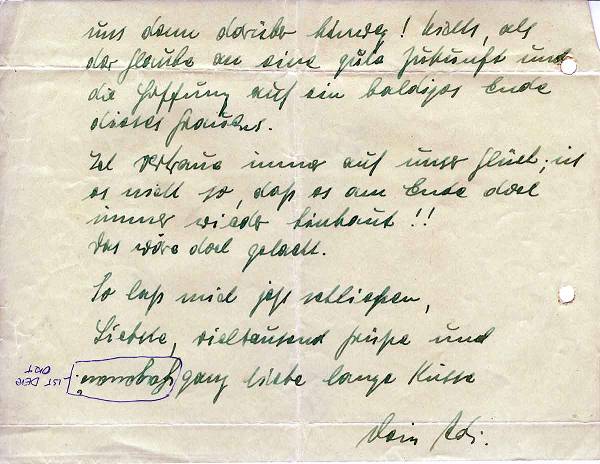 uns dann darüber hinweg! Nichts, als
der Glaube an eine gute Zukunft und
die Hoffnung auf ein baldiges Ende
dieses Grauens.
Ich vertraue immer auf unser Glück; ist
es nicht so, daß es am Ende doch
immer wieder hinhaut!!
Das wäre doch gelacht.
So laß mich jetzt schließen,
Liebste, vieltausend Grüße und
ganz liebe lange Küsse
IST DER
ORT
Dein Adi.